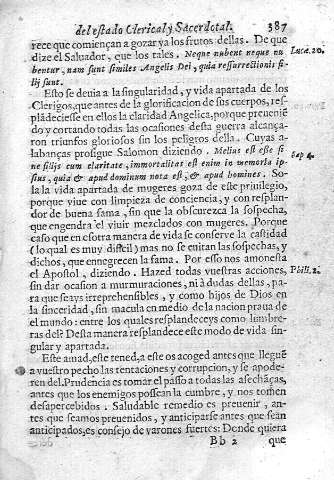 del estado Clerical, y Sacerdotal. 387
rece que comiençan a gozar ya los frutos dellas. De que
dize el Salvador, que los tales. Neque nubent neque nu Luca. 20.
bentur, nam sunt similes Angelis Dei, quia ressurrectionis fi-
lij sunt.
Esto se deuia a la singularidad, y vida apartada de los
Clerigos, que antes de la glorificacion de sus cuerpos, res-
plãdeciesse en ellos la claridad Angelica, porque preuenié
do y cortando todas las ocasiones desta guerra alcança-
ron triunfos gloriosos sin los peligros della. Cuyas a-
labanças prosigue Salomon diziendo. Melius est este si Sap 4.
filijs cum claritate, immortalitas est enim in memoria ip-
sius, quia & apud dominum nota est, & apud homines. So-
la la vida apartada de mugeres goza de este priuilegio,
porque viue con limpieza de conciencia, y con resplan-
dor de buena fama, sin que la obscurezca la sospecha,
que engendra el viuir mezclados con mugeres. Porque
caso que en esotra manera de vida se conserve la castidad
(lo qual es muy dificil) mas no se euitan las sospechas, y
dichos, que ennegrecen la fama. Por esso nos amonesta
el Apostol, diziendo. Hazed todas vuestras acciones, Phili. 2.
sin dar ocasion a murmuraciones, ni à dudas dellas, pa-
ra que seays irreprehensibles, y como hijos de Dios en
la sinceridad, sin macula en medio de la nacion praua de
el mundo: entre los quales resplandeceys como lumbre-
ras del? Desta manera resplandece este modo de vida sin-
gular y apartada.
Este amad, este tened, a este os acoged antes que llegué
a vuestro pecho las tentaciones y corrupcion, y se apode-
ren del. Prudencia es tomar el passo a todas las asechãças,
antes que los enemigos possean la cumbre, y nos tomen
desapercebidos. Saludable remedio es preuenir, an-
tes que seamos preuenidos, y anticiparse antes que sean
anticipados, es consejo de varones fuertes: Donde quiera
Bb 2 que